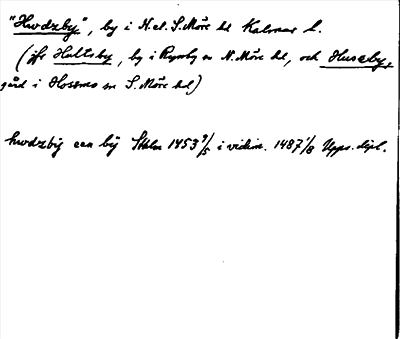 "Hwdzby", by i N. el. S. Möre hd Kalmar l.
(jfr Hultsby, by i Ryssby sn N. Möre hd, och Huseby,
gård i Hossmo sn S. Möre hd)
hwdzbij een bij Sthlm 1453 9/5 i vidim. 1487 1/8 Upps. dipl.